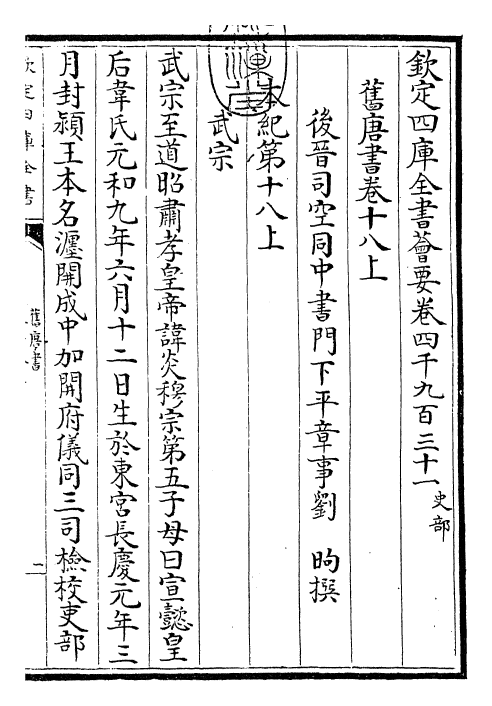 欽定四庫全書薈要卷四千九百三十一 史部
舊唐書卷十八上
後晉司空同中書門下平章事劉 昫撰
本紀第十八上
武宗
武宗至道昭肅孝皇帝諱炎穆宗第五子母曰宣懿皇
后韋氏元和九年六月十二日生於東宮長慶元年三
月封潁王本名瀍開成中加開府儀同三司檢校吏部
欽定四庫全書
舊唐書